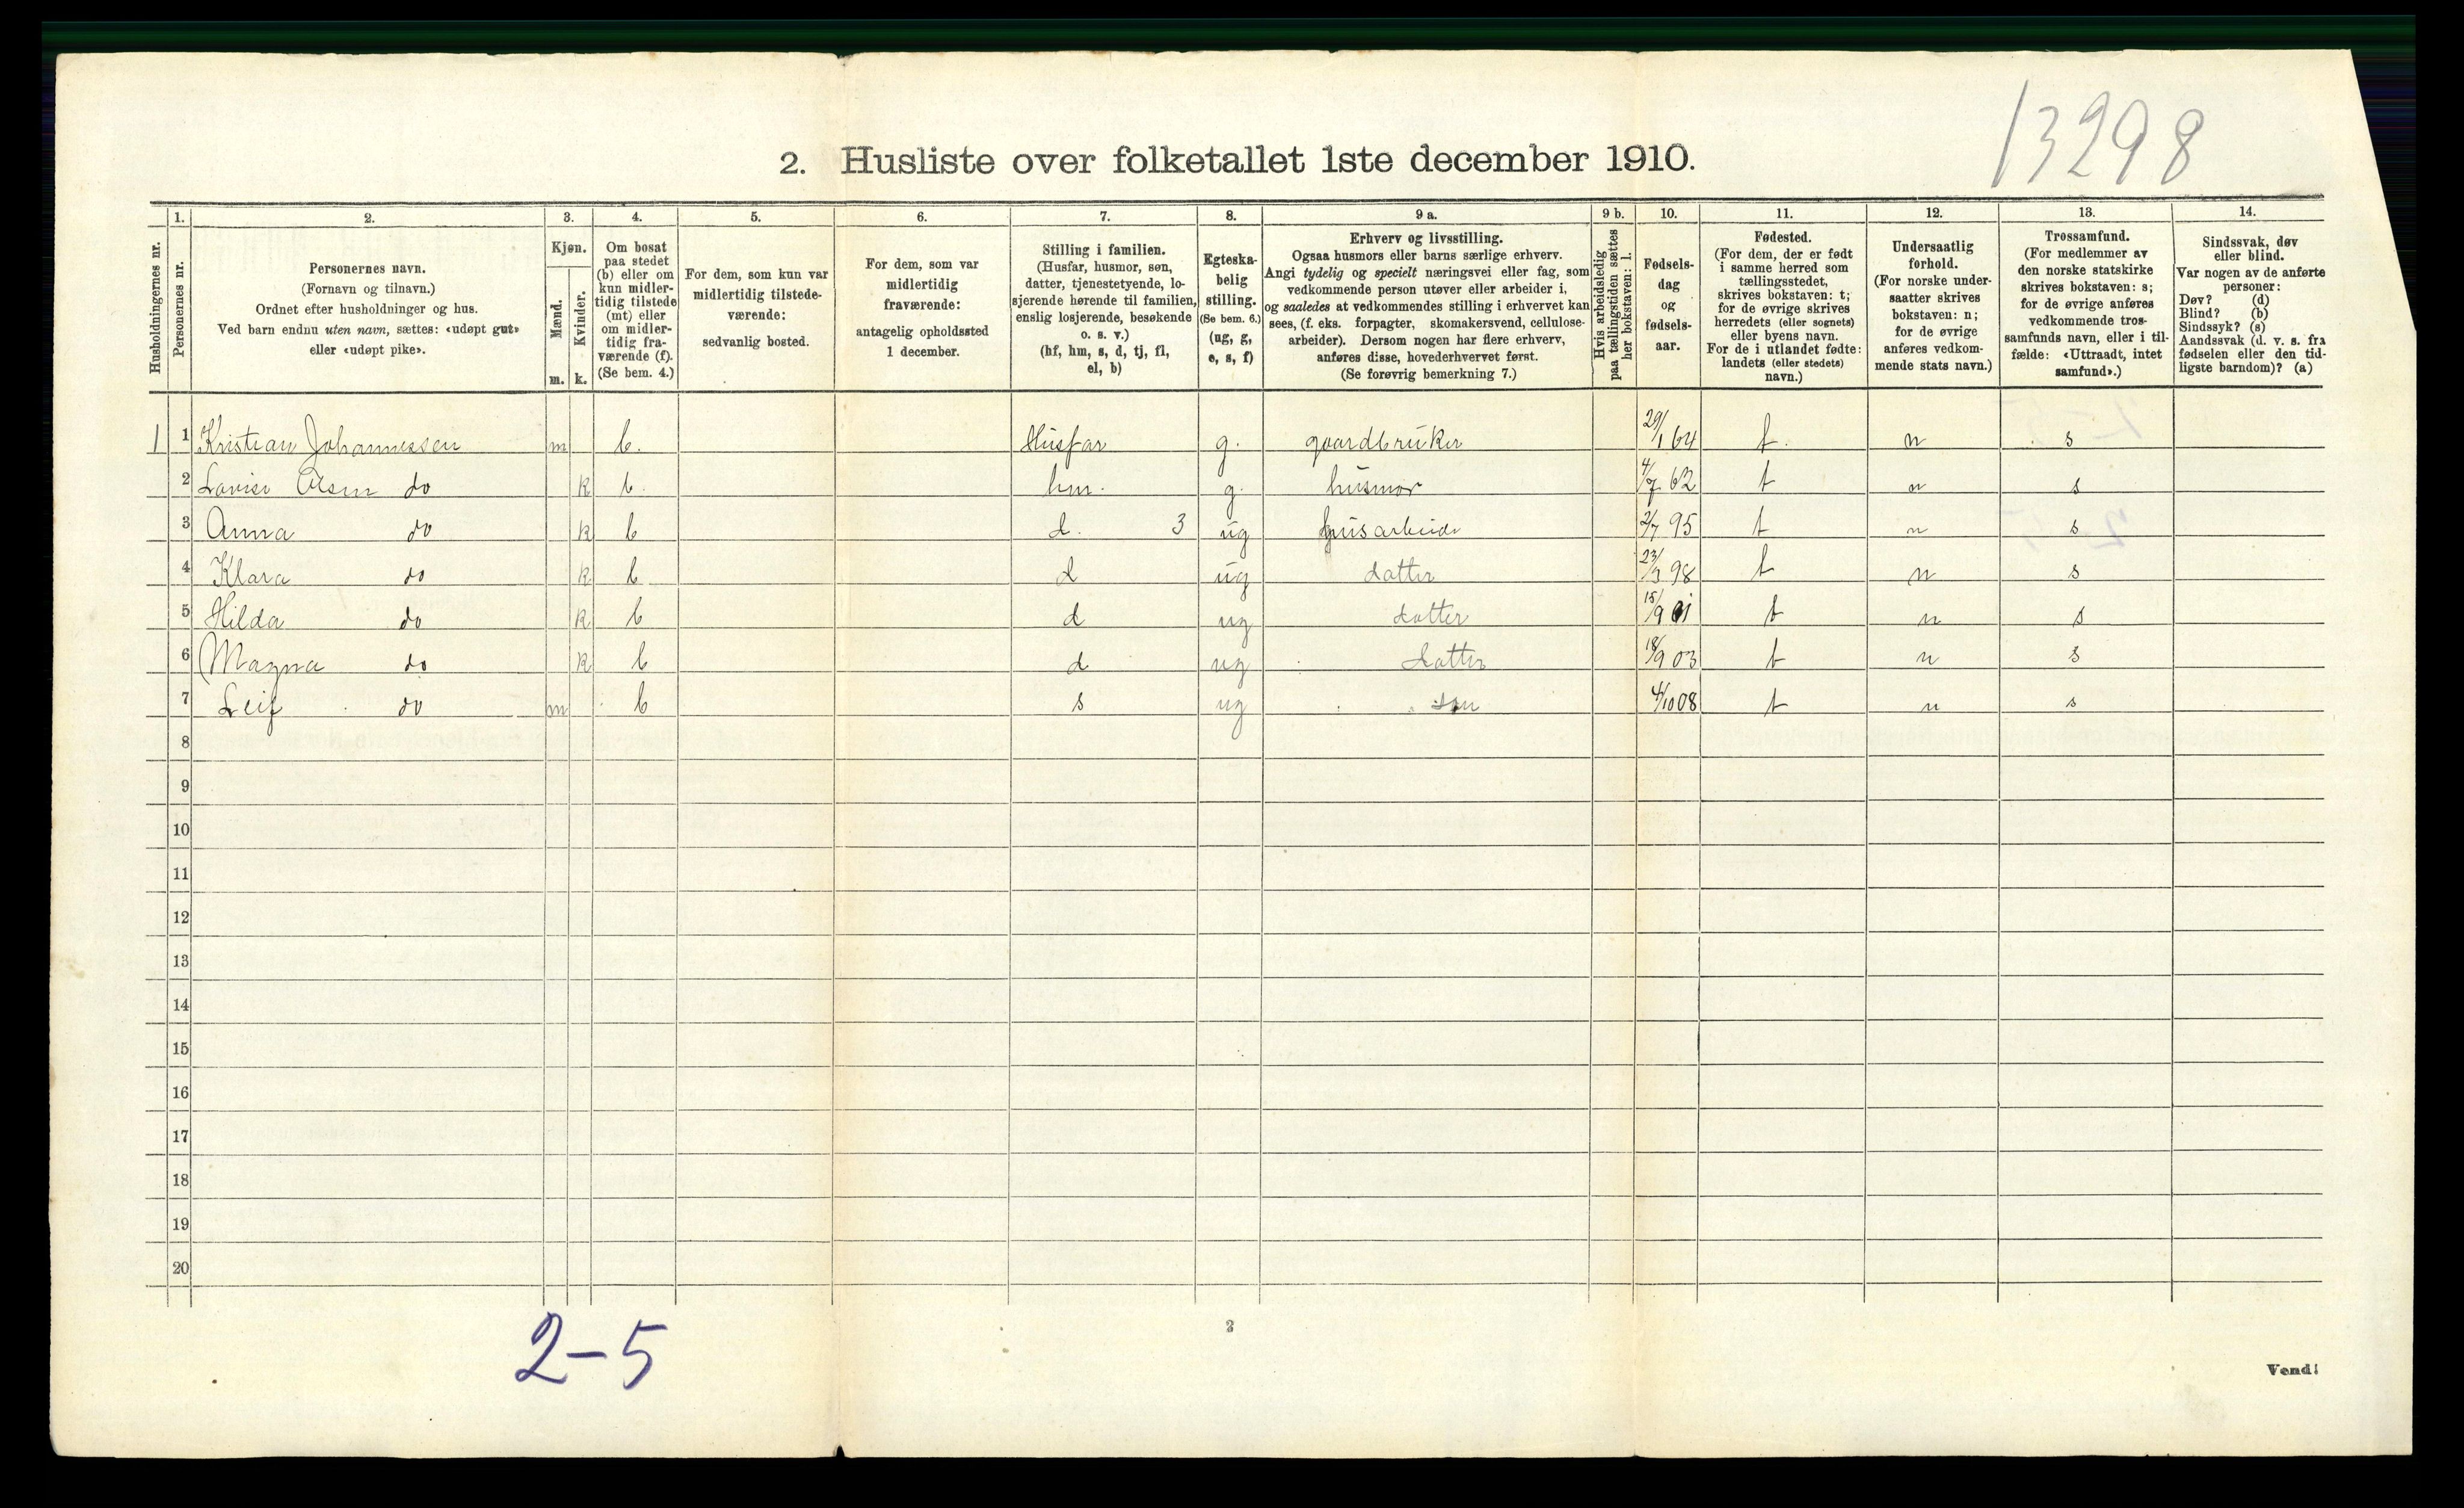 13298
2. Husliste over folketallet 1ste december 1910.
Husholdningernes nr.
1. Personernes nr.
2. Personernes navn. (Fornavn og tilnavn.) Ordnet efter husholdninger og hus. Ved barn endnu uten navn, sættes: «udøpt gut» eller «udøpt pike».
3. Kjøn. Mænd. m. Kvinder. k.
4. Om bosat paa stedet (b) eller om kun midlertidig tilstede (mt) eller om midlertidig fraværende (f). (Se bem. 4.)
5. For dem, som kun var midlertidig tilstedeværende: sedvanlig bosted.
6. For dem, som var midlertidig fraværende: antagelig opholdssted 1 december.
7. Stilling i familien. (Husfar, husmor, søn, datter, tjenestetyende, losjerende hørende til familien, enslig losjerende, besøkende o. s. v.) (hf, hm, s, d, tj, fl, el, b)
8. Egteskabelig stilling. (Se bem. 6.) (ug, g, e, s, f)
9 a. Erhverv og livsstilling. Ogsaa husmors eller barns særlige erhverv. Angi tydelig og specielt næringsvei eller fag, som vedkommende person utøver eller arbeider i, og saaledes at vedkommendes stilling i erhvervet kan sees, (f. eks. forpagter, skomakersvend, cellulosearbeider). Dersom nogen har flere erhverv, anføres disse, hovederhvervet først. (Se forøvrig bemerkning 7.)
9 b. Hvis arbeidsledig paa tællingstiden sættes her bokstaven: l.
10. Fødselsdag og fødselsaar.
11. Fødested. (For dem, der er født i samme herred som tællingsstedet, skrives bokstaven: t; for de øvrige skrives herredets (eller sognets) eller byens navn. For de i utlandet fødte: landets (eller stedets) navn.)
12. Undersaatlig forhold. (For norske undersaatter skrives bokstaven: n; for de øvrige anføres vedkommende stats navn.)
13. Trossamfund. (For medlemmer av den norske statskirke skrives bokstaven: s; for de øvrige anføres vedkommende trossamfunds navn, eller i tilfælde: «Uttraadt, intet samfund».)
14. Sindssvak, døv eller blind. Var nogen av de anførte personer: Døv? (d) Blind? (b) Sindssyk? (s) Aandssvak (d. v. s. fra fødselen eller den tidligste barndom)? (a)
1 1 Kristian Johannessen m b. Husfar g. gaardbruker 29/1 64 t. n s
2 Lovise Olsen do k b. hm. g. husmor 4/7 62 t n s
3 Anna do k b d. 3 ug husarbeide 2/7 95 t n s
4 Klara do k b d ug datter 23/3 98 t n s
5 Hilda do k b d ug datter 15/9 01 t n s
6 Magna do k b d ug datter 18/9 03 t n s
7 Leif do m b s ug søn 4/10 08 t n s
8
9
10
11
12
13
14
15
16
17
18
19
20
2-5
Vend!